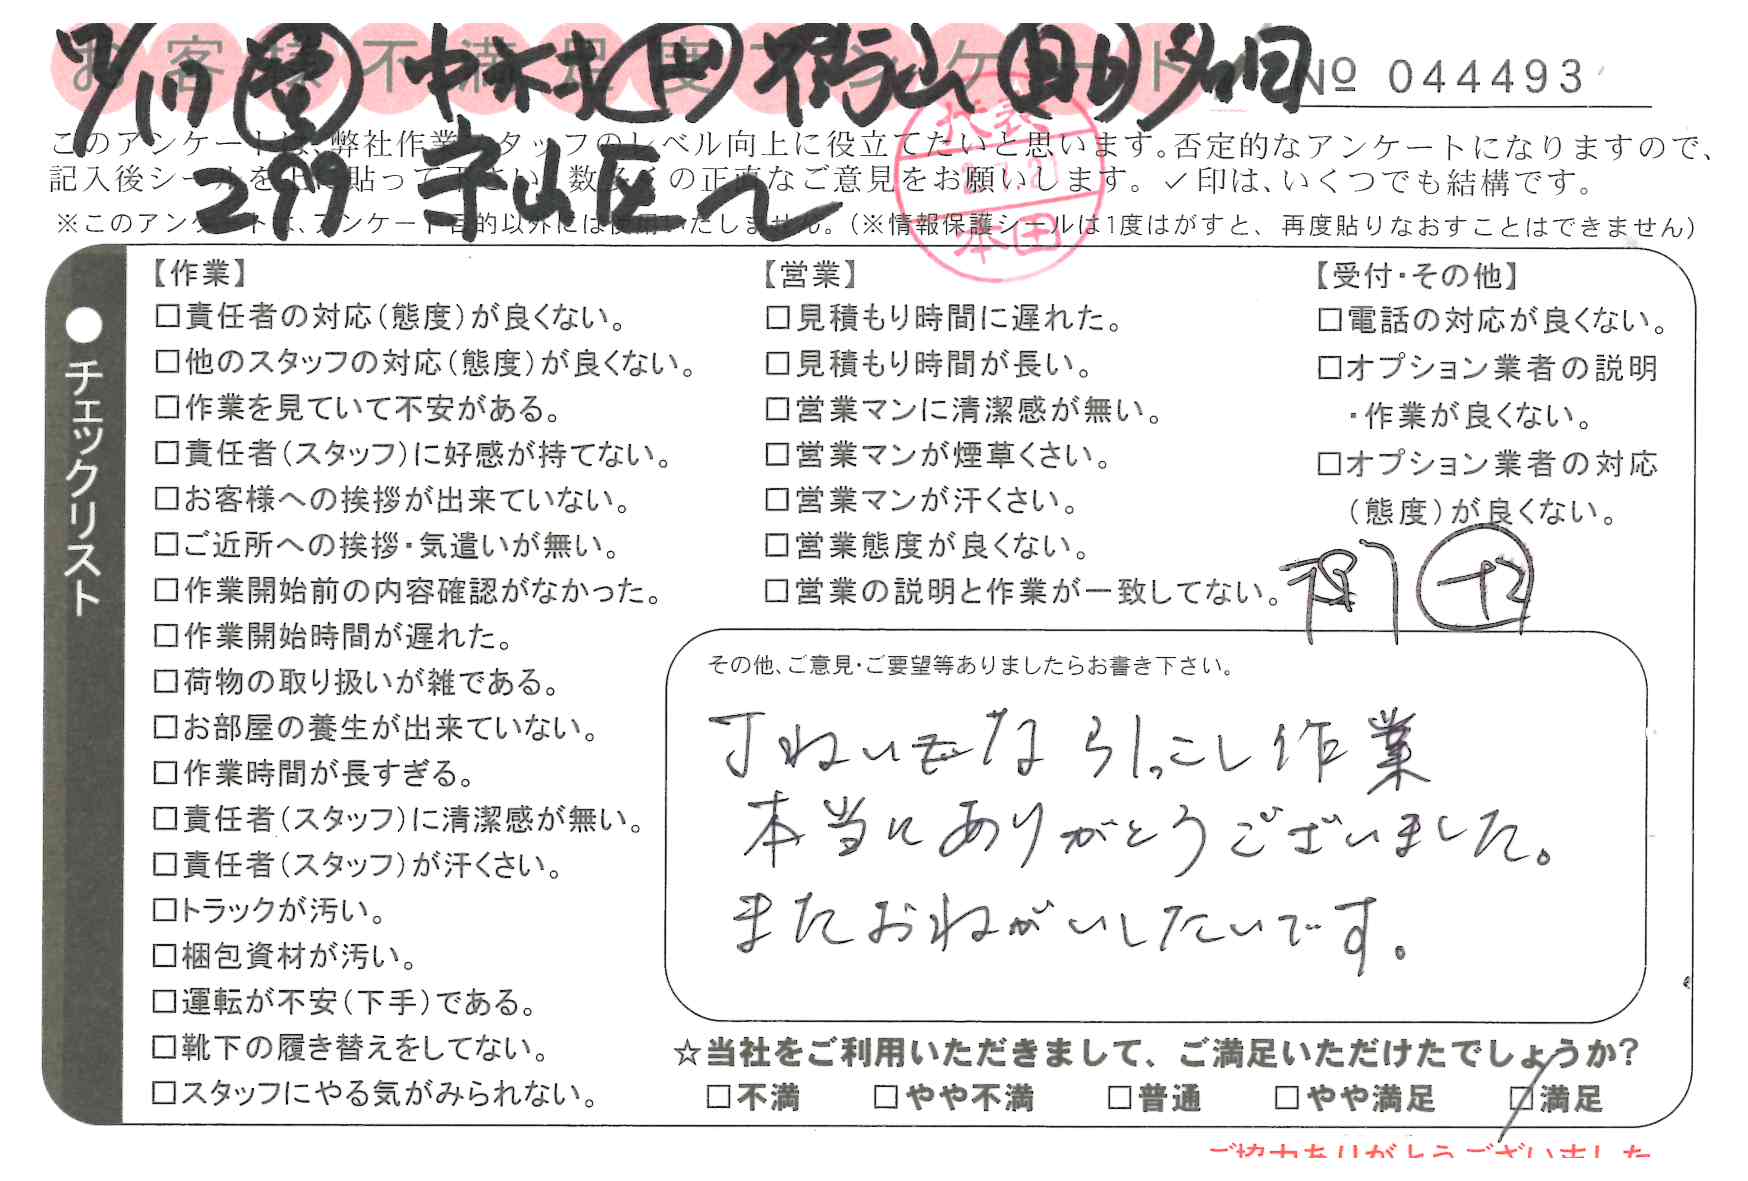 お客様不満足度アンケート
№ 044493
このアンケートは、弊社作業スタッフのレベル向上に役立てたいと思います。否定的なアンケートになりますので、
記入後シールを上に貼って下さい。数多くの正直なご意見をお願いします。✓印は、いくつでも結構です。
※このアンケートは、アンケート目的以外には使用いたしません。(※情報保護シールは1度はがすと、再度貼りなおすことはできません)
代表
本田
299 守山区へ
●チェックリスト
【作業】
□責任者の対応(態度)が良くない。
□他のスタッフの対応(態度)が良くない。
□作業を見ていて不安がある。
□責任者(スタッフ)に好感が持てない。
□お客様への挨拶が出来ていない。
□ご近所への挨拶・気遣いが無い。
□作業開始前の内容確認がなかった。
□作業開始時間が遅れた。
□荷物の取り扱いが雑である。
□お部屋の養生が出来ていない。
□作業時間が長すぎる。
□責任者(スタッフ)に清潔感が無い。
□責任者(スタッフ)が汗くさい。
□トラックが汚い。
□梱包資材が汚い。
□運転が不安(下手)である。
□靴下の履き替えをしてない。
□スタッフにやる気がみられない。
【営業】
□見積もり時間に遅れた。
□見積もり時間が長い。
□営業マンに清潔感が無い。
□営業マンが煙草くさい。
□営業マンが汗くさい。
□営業態度が良くない。
□営業の説明と作業が一致してない。
【受付・その他】
□電話の対応が良くない。
□オプション業者の説明
・作業が良くない。
□オプション業者の対応
(態度)が良くない。
+2
その他、ご意見・ご要望等ありましたらお書き下さい。
丁ねいな引っこし作業
本当にありがとうございました。
またおねがいしたいです。
☆当社をご利用いただきまして、ご満足いただけたでしょうか?
□不満 □やや不満 □普通 □やや満足 □満足
ご協力ありがとうございました